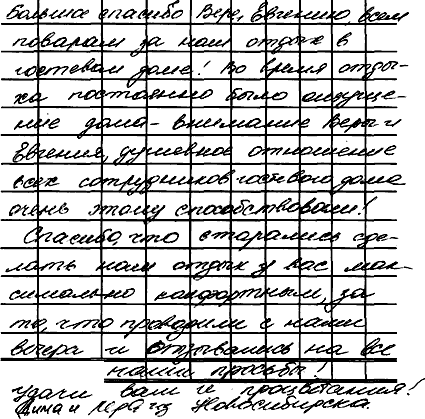 Большое спасибо Вере, Евгению, всем
поварам за наш отдых в
гостевом доме! Во время отды-
ха постоянно было ощуще-
ние дома - внимание Веры и
Евгения, душевное отношение
всех сотрудников гостевого дома
очень этому способствовали!
Спасибо, что старались сде-
лать наш отдых у вас мак-
симально комфортным, за
то, что проводили с нами
вечера и отзывались на все
наши просьбы!
удачи вам и процветания!
и Лера из Новосибирска